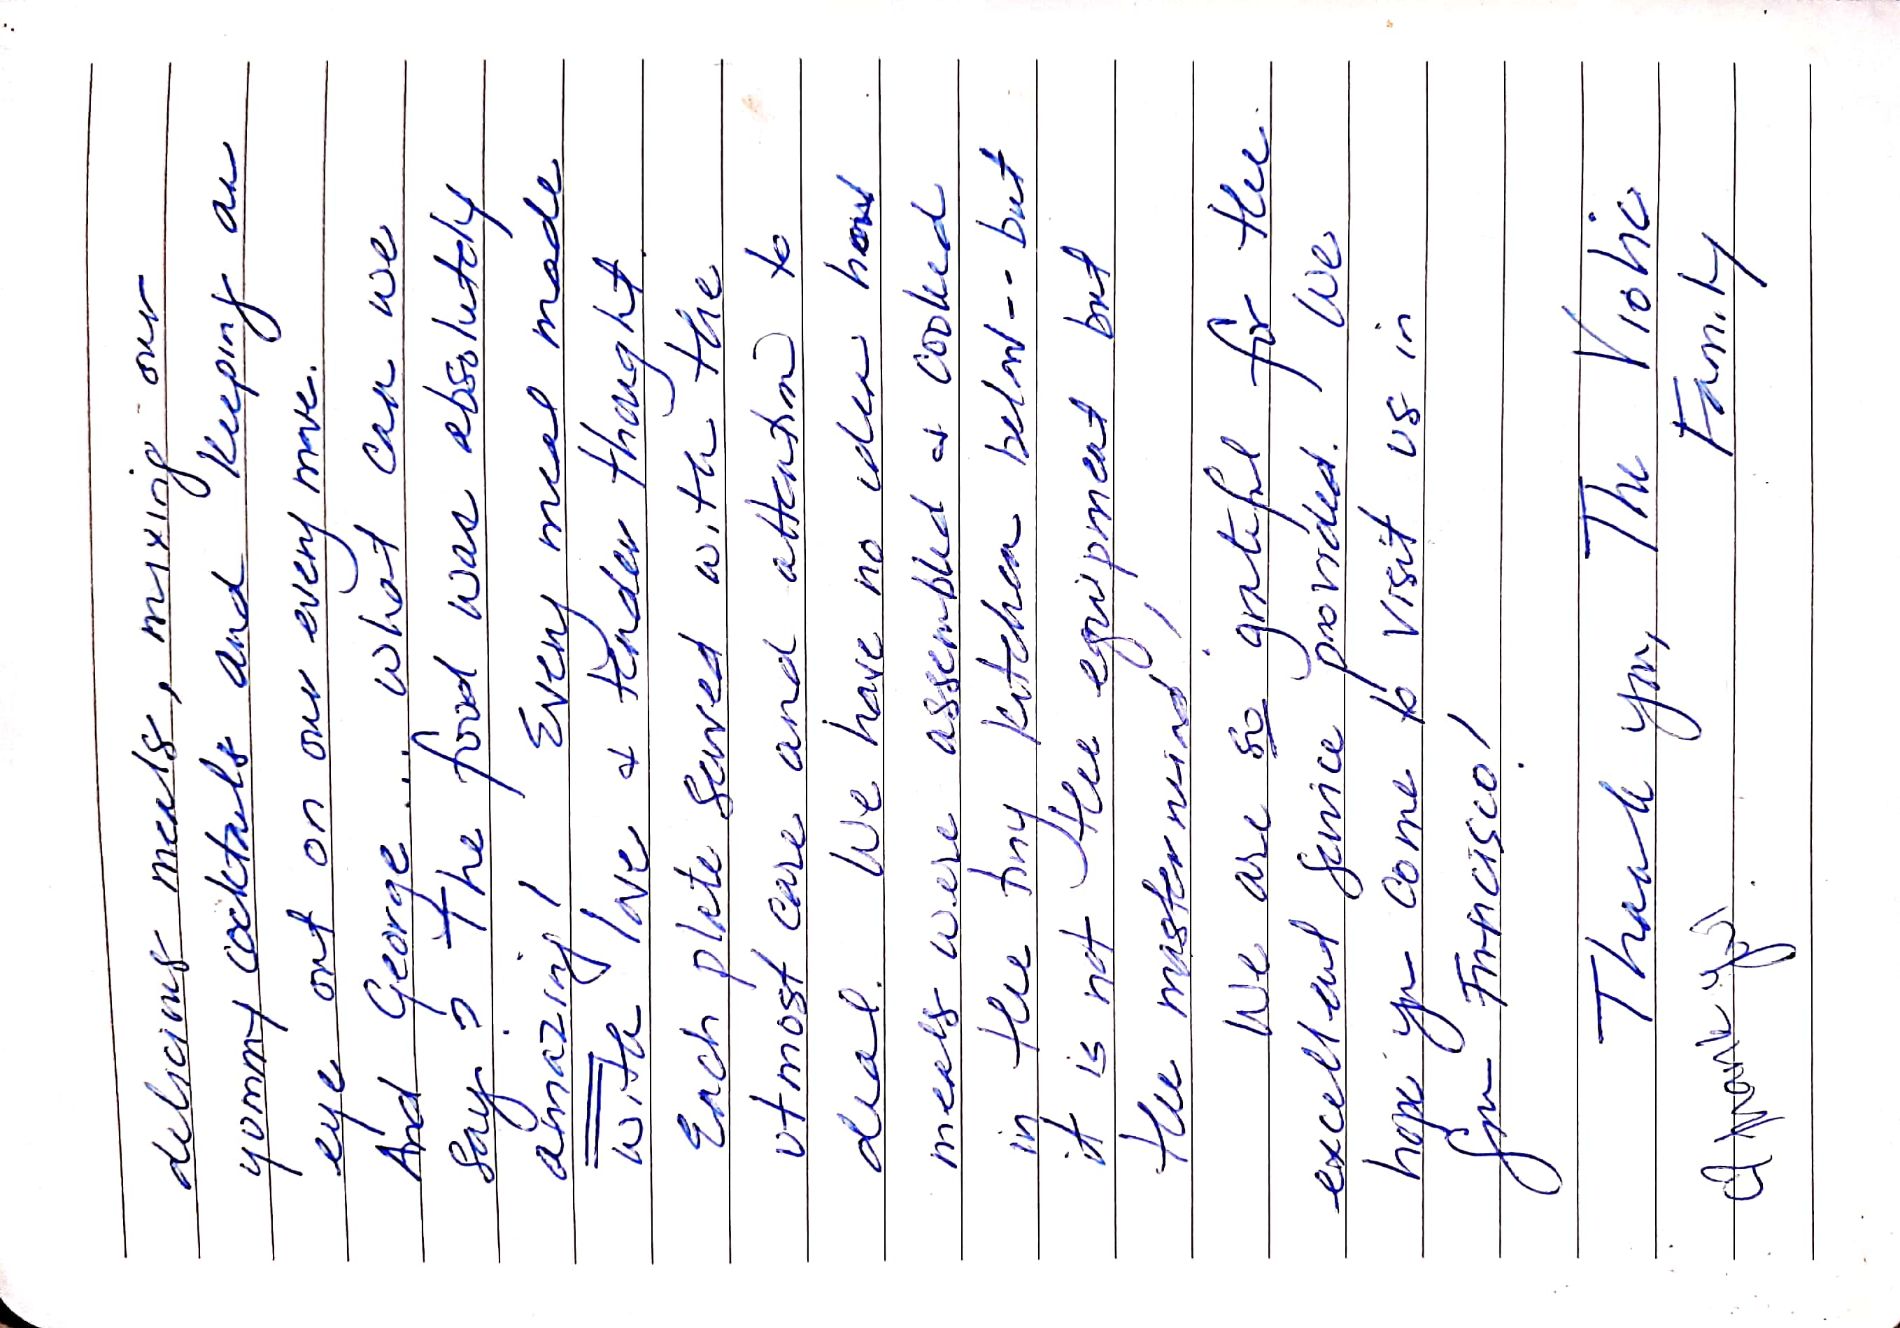 delicious meals, mixing our
yommy cocktails and keeping an
eye out on our every move.
And George... what can we
say? The food was absolutely
amazing! Every meal made
with love & tender thought.
Each plate served with the
utmost care and attention to
deal. We have no idea how
meals were assembled & cooked
in the tiny kitchen below -- but
it is not the equipment but
the mastermind!
We are so grateful for the
excellent service provided. We
hope you come to visit us in
San Francisco!
Thank you, The
Family